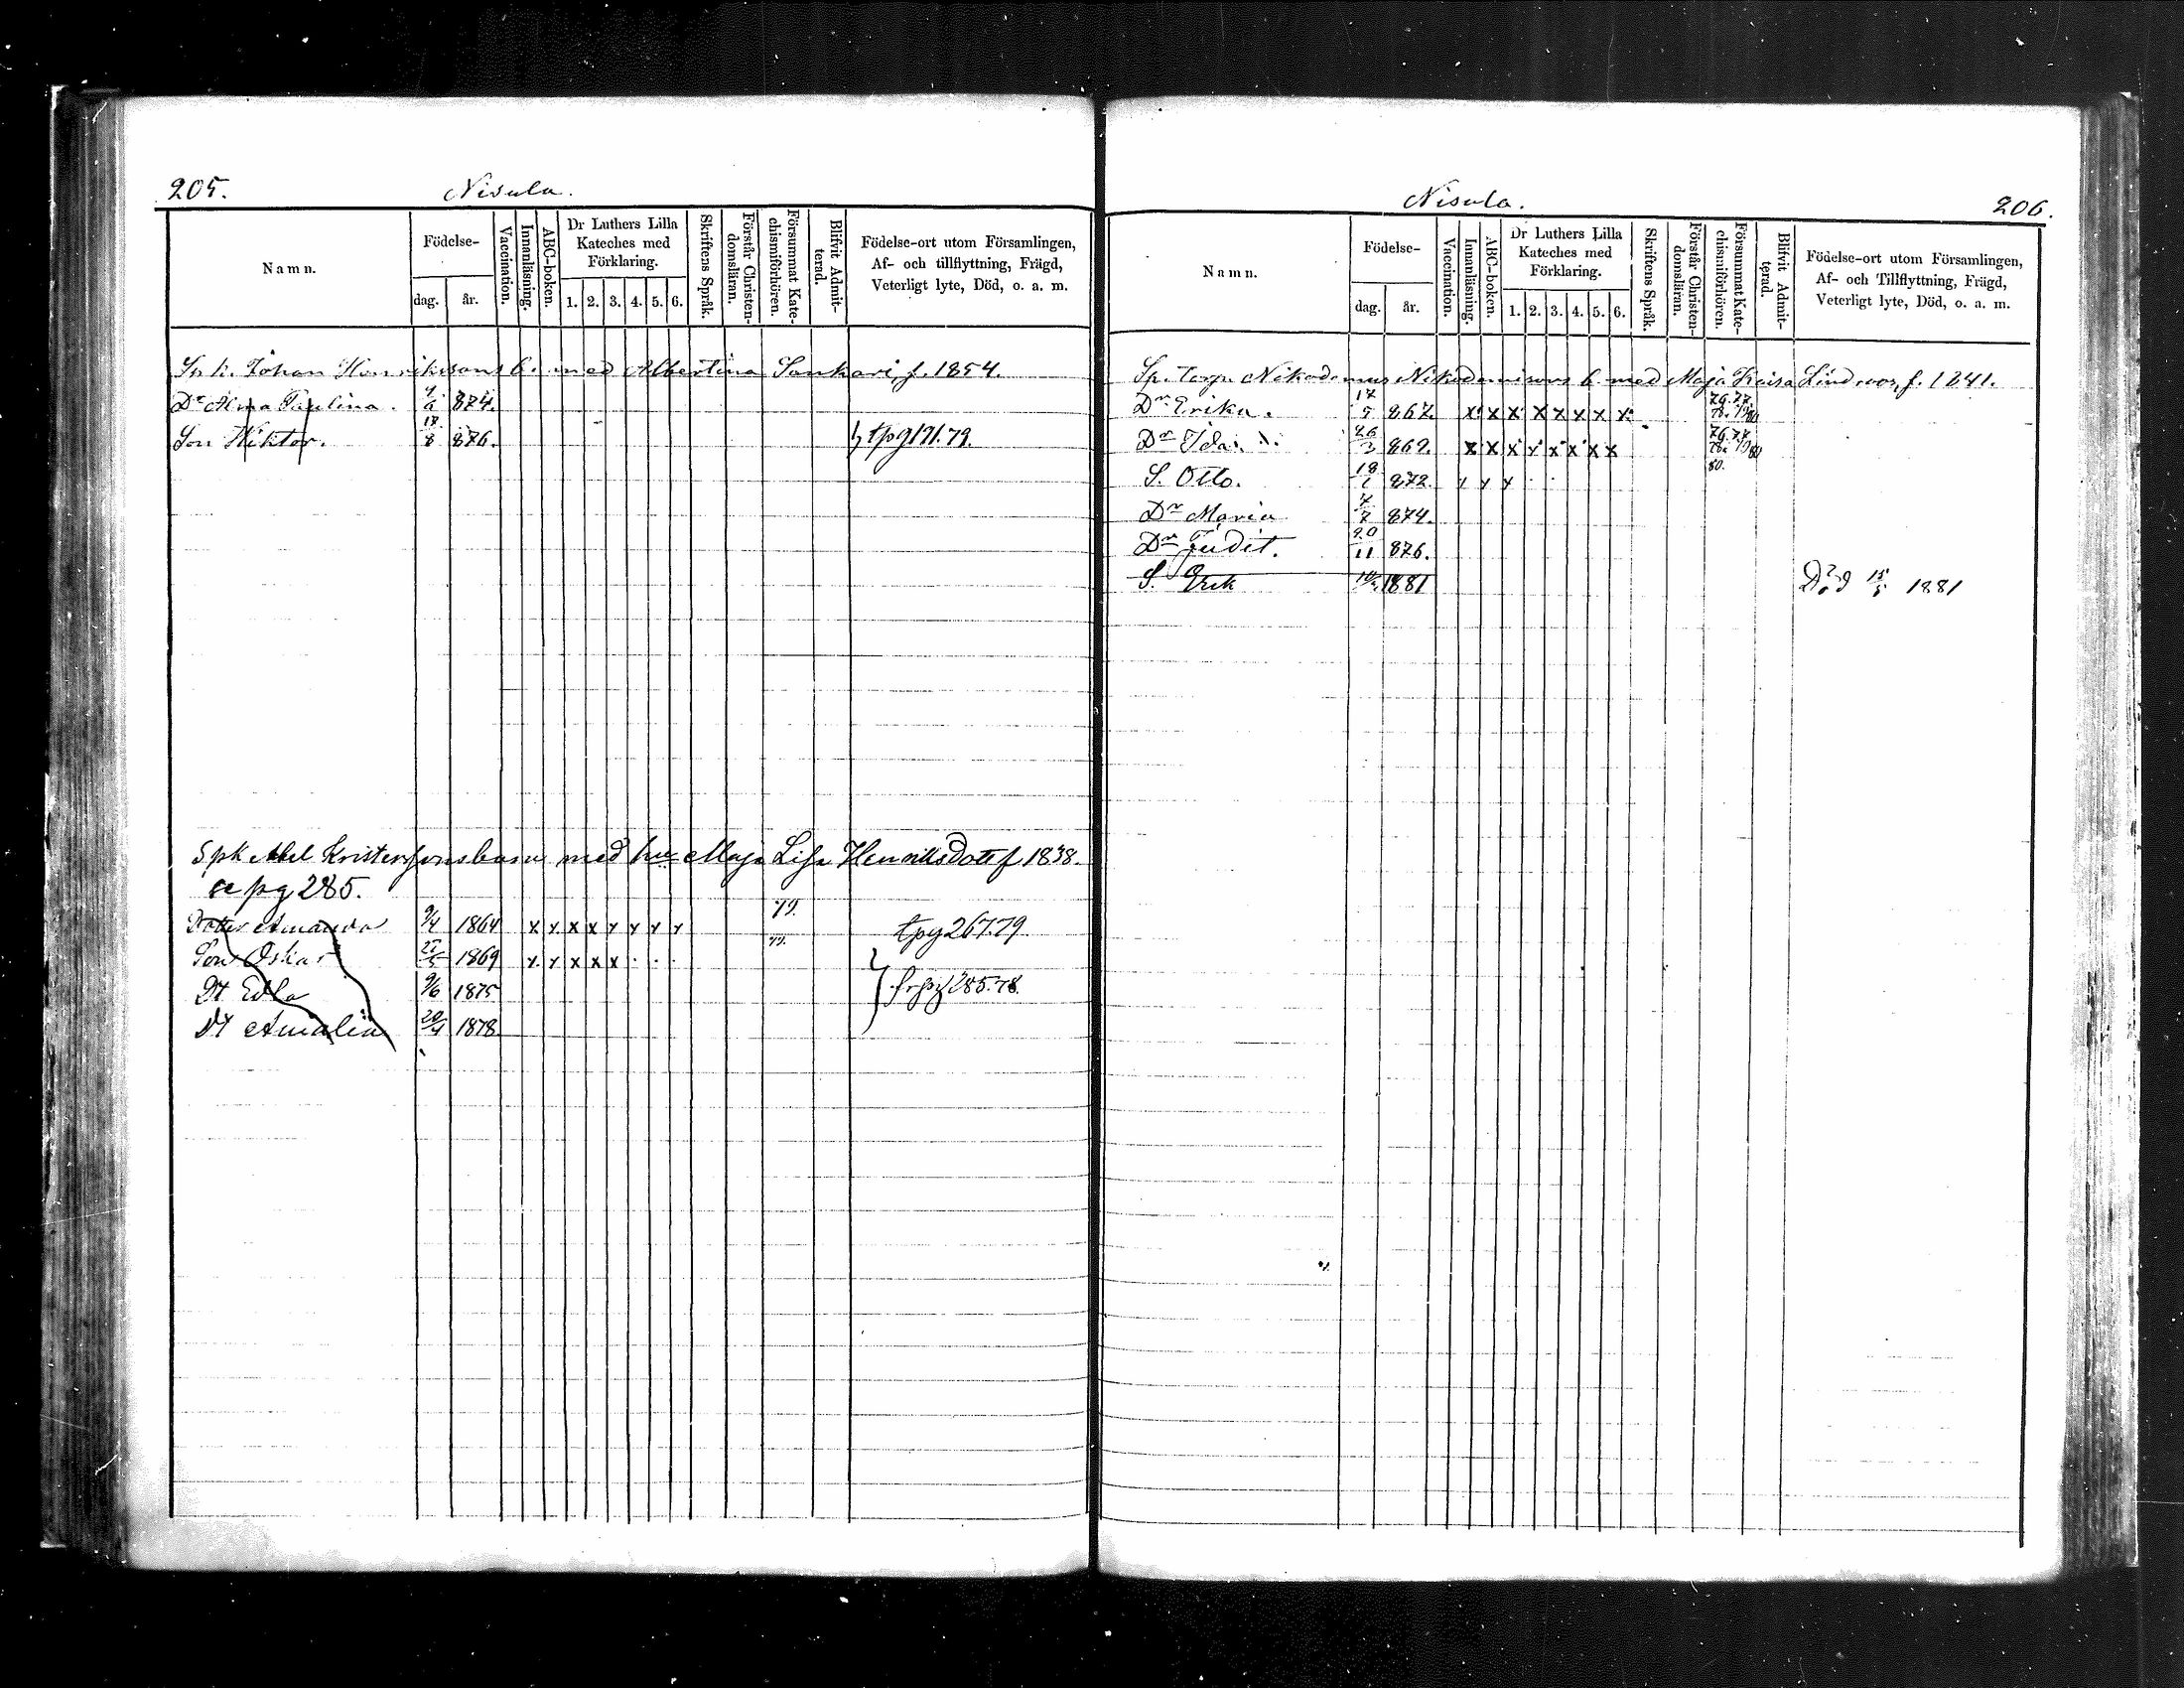 205.
Nisula.
Namn.
Födelse-
dag.
år.
Vaccination.
Innanläsning.
ABC-boken.
Dr Luthers Lilla
Kateches med
Förklaring.
1. 2. 3. 4. 5. 6.
Skriftens Språk.
Förstår Christen-
domsläran.
Försummat Kate-
chismiförhören.
Blifvit Admit-
terad.
Födelse-ort utom Församlingen,
Af- och tillflyttning, Frägd,
Veterligt lyte, Död, o. a. m.
Johan Henrikssons b. med Albertina f. 1854.
Dr Alma Paulina. 874.
Son Wiktor. 18/8 876. tpg 171.79.
Spk Abel Kristerssons barn med hu Maja Lisa Henriksdott f 1838.
se pg 285.
Dotter Amanda 9/4 1864 x x x x x x x x 79. tpg 267.79
Son Oskar 1869 x x x x x 79.
Dt Edla 9/6 1875 frpg 285.78.
Dt Amalia 20/4 1878
Nisula.
206.
Namn.
Födelse-
dag.
år.
Vaccination.
Innanläsning.
ABC-boken.
Dr Luthers Lilla
Kateches med
Förklaring.
1. 2. 3. 4. 5. 6.
Skriftens Språk.
Förstår Christen-
domsläran.
Försummat Kate-
chismiförhören.
Blifvit Admit-
terad.
Födelse-ort utom Församlingen,
Af- och Tillflyttning, Frägd,
Veterligt lyte, Död, o. a. m.
Sp. Torp. Nikodemus Nikodemisons b. med Maja Kaisa Lindroos, f. 1841.
Dr Erika. 17/5 867. x x x x x x x x 76. 77. 78. 79. 80
Dr Ida. 26/3 869. x x x x x x x x 76. 77. 78. 79. 80
80.
S. Otto. 872. x x x
Dr Maria 4/7 874.
Dr Judit. 20/11 876.
S. Erik 1881 Död 15/5 1881